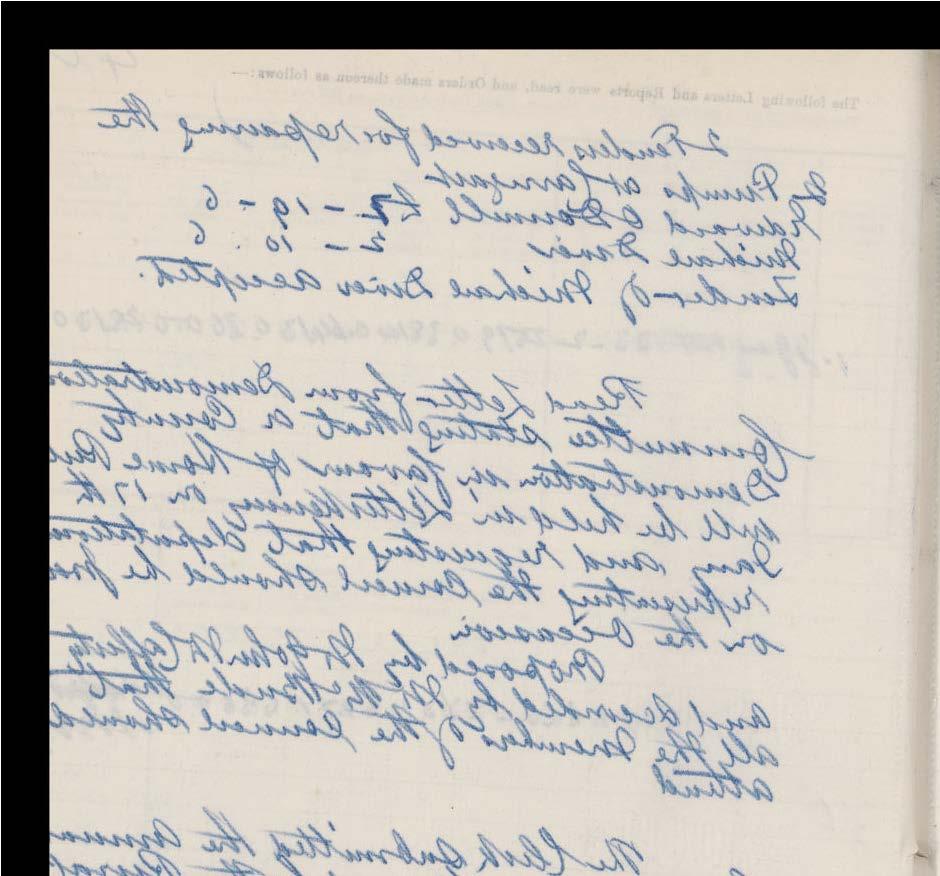 The following Letters and Reports were read, and Orders made thereon as follows:—
2 Tenders received for repairing the
Pumps at Carrigart
Edward O Donnell £2 - 19 - 6
Michael Diver 2 - 10 . 6
Tender of Michael Diver accepted.
Read Letter from Demonstration
Committee stating that a County
Demonstration in favour of Home
will be held in Letterkenny on 17th
Jany and requesting that deputation
representing the Council should be pre
on the occasion
Proposed by Mr John McCafferty
and seconded by Mr McBride that
all the members of the Council should
attend
The Clerk submitted the
the Rural